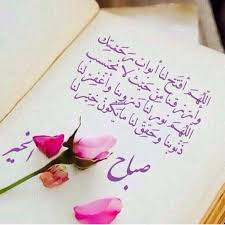 اللهم افتح لنا أبواب رحمتك
وارزقنا من حيث لا نحتسب
اللهم نور لنا دروبنا واغفر لنا
ذنوبنا وحقق لنا مايكون خير لنا
صباح الخير